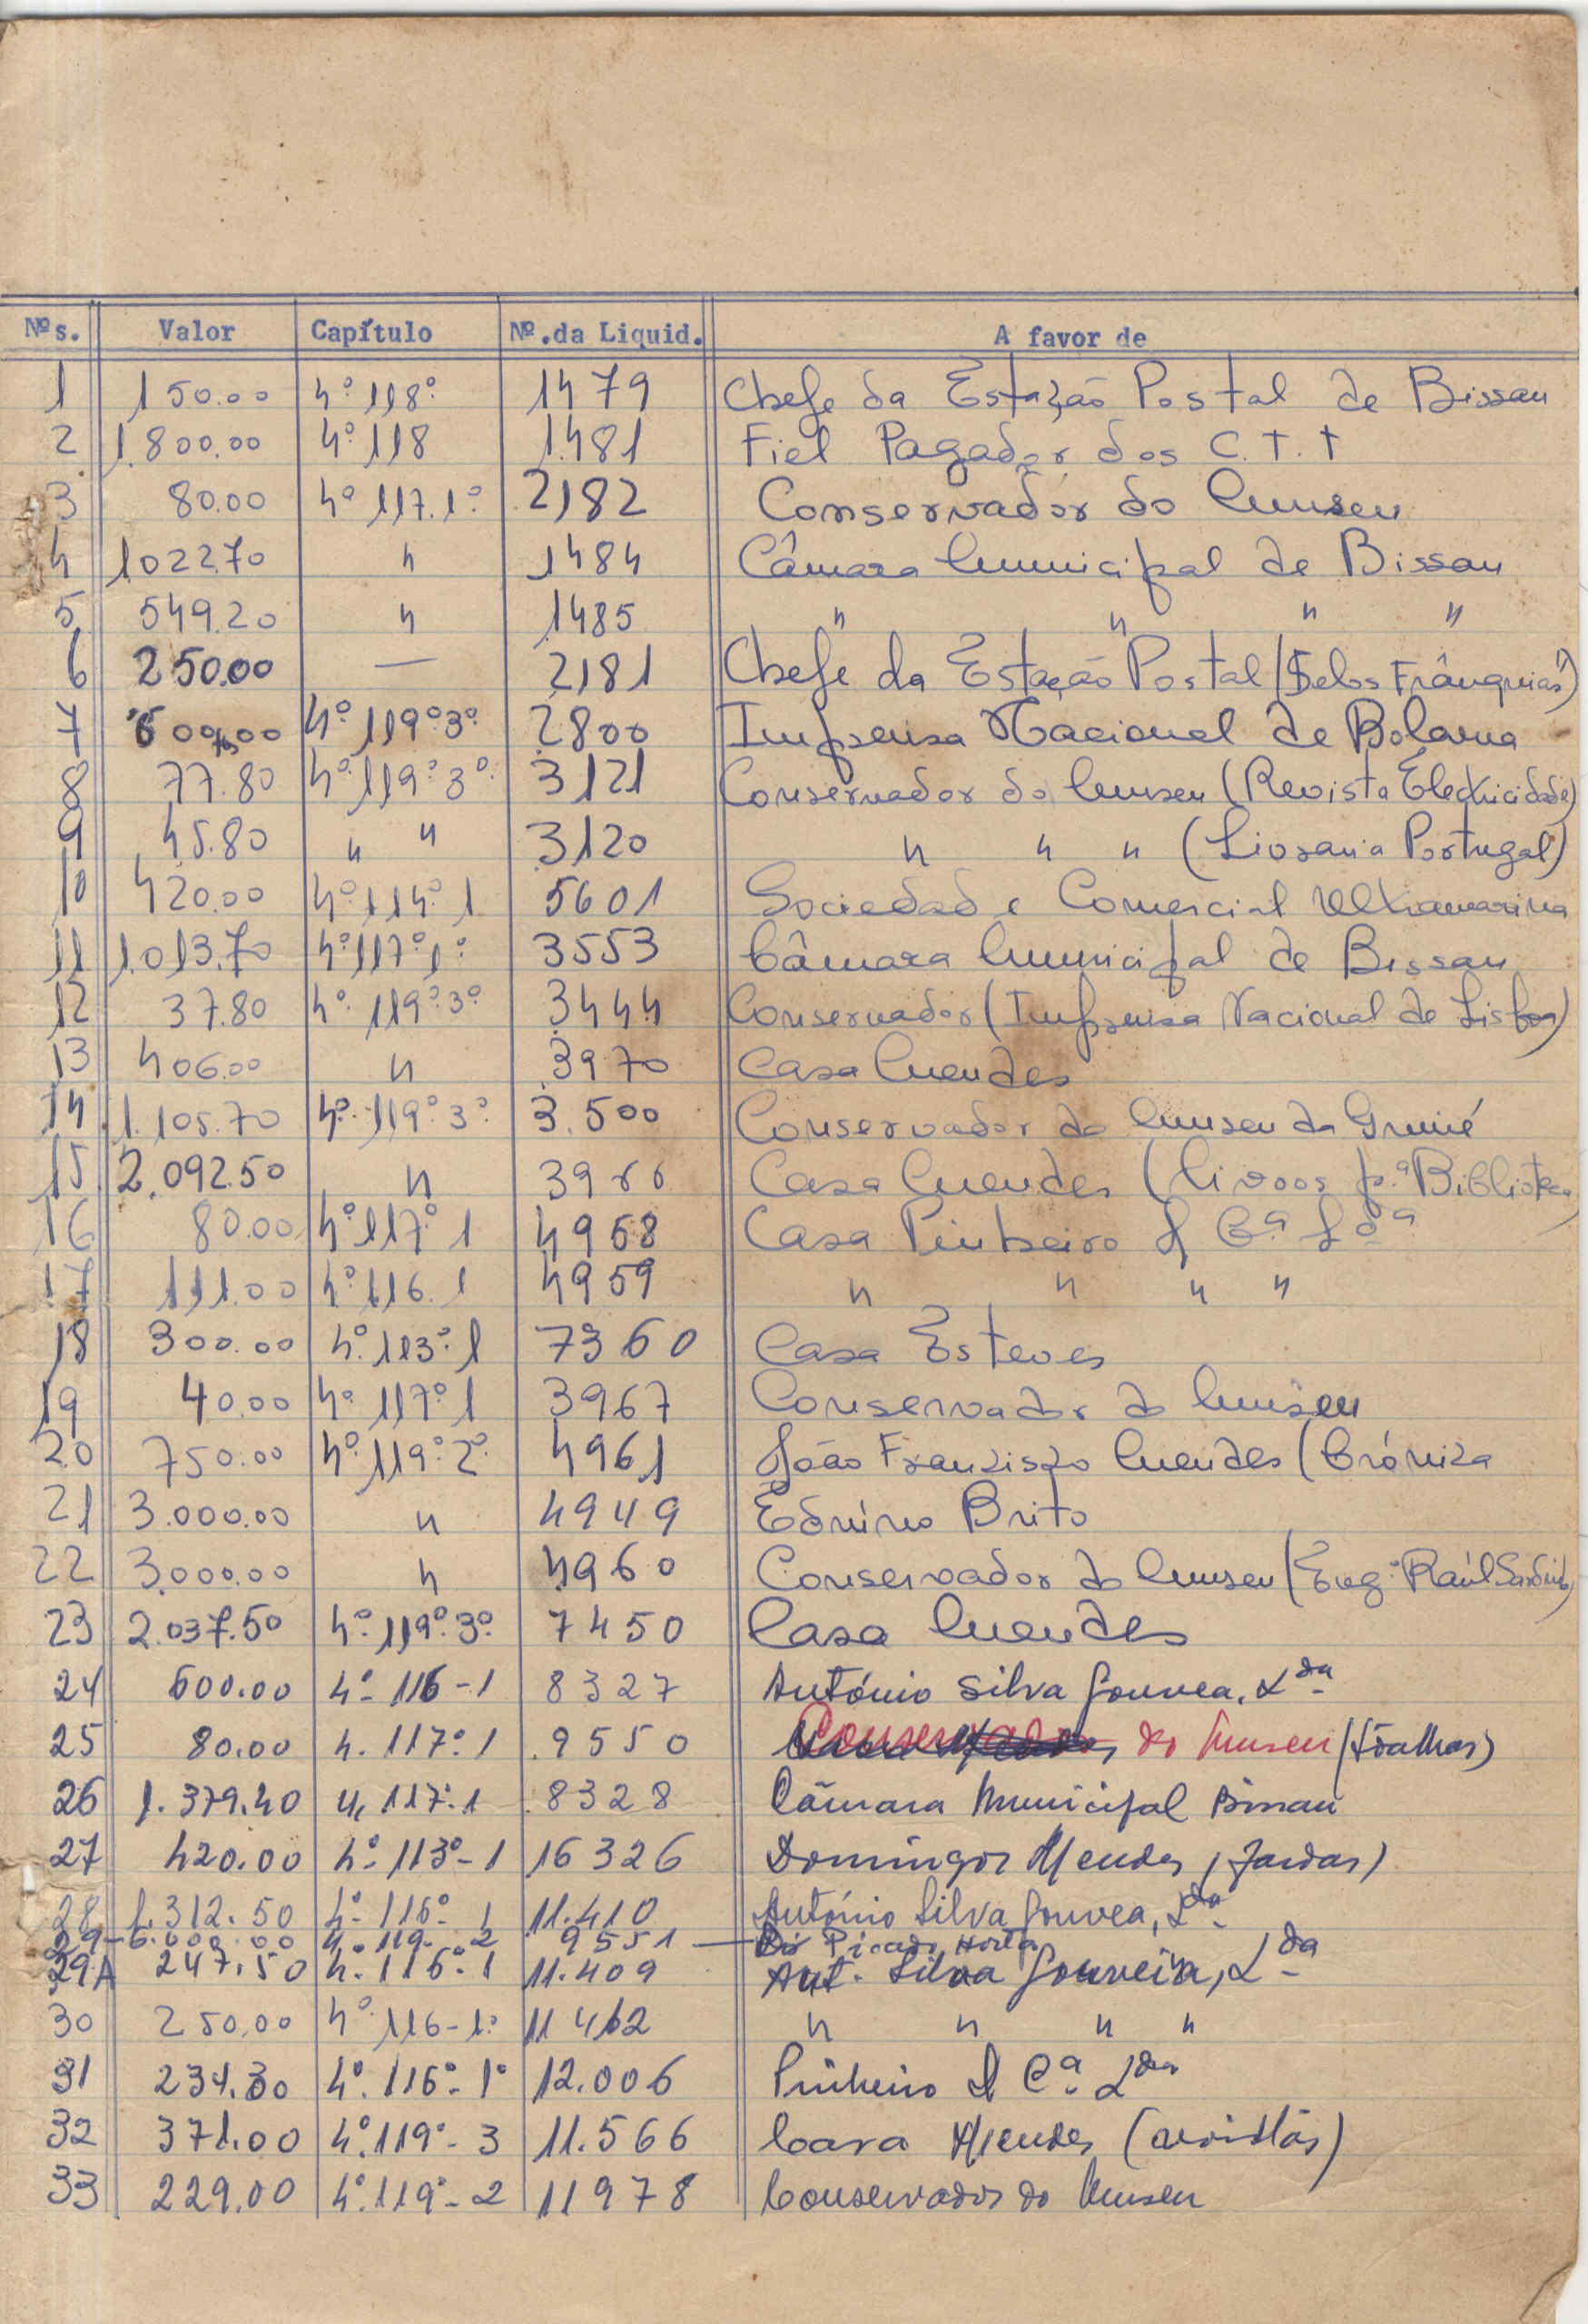 Nºs. Valor Capítulo Nº.da Liquid. A favor de
1 150.00 4º 118º 1479 Chefe da Estação Postal de Bissau
2 1.800.00 4º 118 1481 Fiel Pagador dos C.T.T
3 80.00 4º 117.1º 2182 Conservador do Museu
4 1022.70 " 1484 Câmara Municipal de Bissau
5 549.20 " 1485 " " " "
6 250.00 — 2181 Chefe da Estação Postal (Selos Frânquias)
7 600,00 4º 119º 3º 2800 Imprensa Nacional de Bolama
8 77.80 4º 119º 3º 3121 Conservador do Museu (Revista Electricidade)
9 45.80 " " 3120 " " " (Livraria Portugal)
10 420.00 4º 114º 1 5601 Sociedade Comercial Ultramarina
11 1.013.70 4º 117º 1º 3553 Câmara Municipal de Bissau
12 37.80 4º 119º 3º 3444 Conservador (Imprensa Nacional de Lisboa)
13 406.00 " 3970 Casa Mendes
14 1.105.70 4º 119º 3º 3.500 Conservador do Museu da Guiné
15 2.092.50 " 3966 Casa Mendes (livros p.ª Biblioteca
16 80.00 4º 117º 1 4958 Casa Pinheiro & Cª Ldª
17 111.00 4º 116. 1 4959 " " " "
18 300.00 4º 113º 1 7360 Casa Esteves
19 40.00 4º 117º 1 3967 Conservador do Museu
20 750.00 4º 119º 2º 4961 João Francisco Mendes (Crónica
21 3.000.00 " 4949 Edmino Brito
22 3.000.00 " 4960 Conservador do Museu (Engº Raúl
23 2.037.50 4º 119º 3º 7450 Casa Mendes
24 600.00 4º- 116-1 8327 António Silva Gouvea, Lda
25 80.00 4. 117º 1 9550 Conservador do Museu (toalhas)
26 1.379.40 4. 117º 1 8328 Câmara Municipal Bissau
27 420.00 4º- 113º-1 16326 Domingos Mendes (fardas)
28 1.312.50 4º- 116º 1 11.410 António Silva Gouvea, Lda
29 - 6.000.00 4º 119- 2 9551 — Picado Horta
29A 247.50 4º. 116º-1 11.409 Ant. Silva Gouveia, Lda
30 250.00 4º 116-1º 11 412 " " " "
31 234.30 4º. 116º-1º 12.006 Pinheiro & Cª Lda
32 371.00 4º. 119º- 3 11.566 Casa Mendes (revistas)
33 229.00 4º. 119º- 2 11978 Conservador do Museu